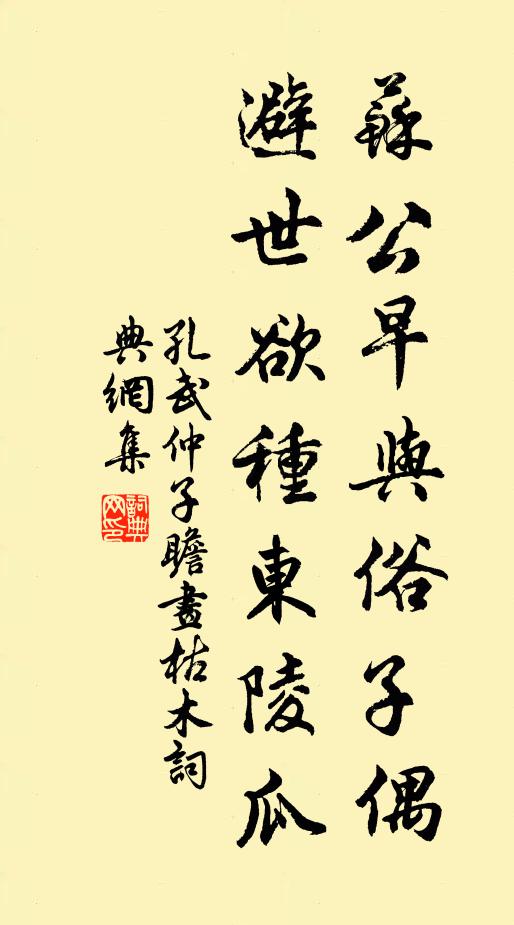 蘇公早與俗子偶
避世欲種東陵瓜
孔武仲子瞻畫枯木詞
典網集
詞典網印